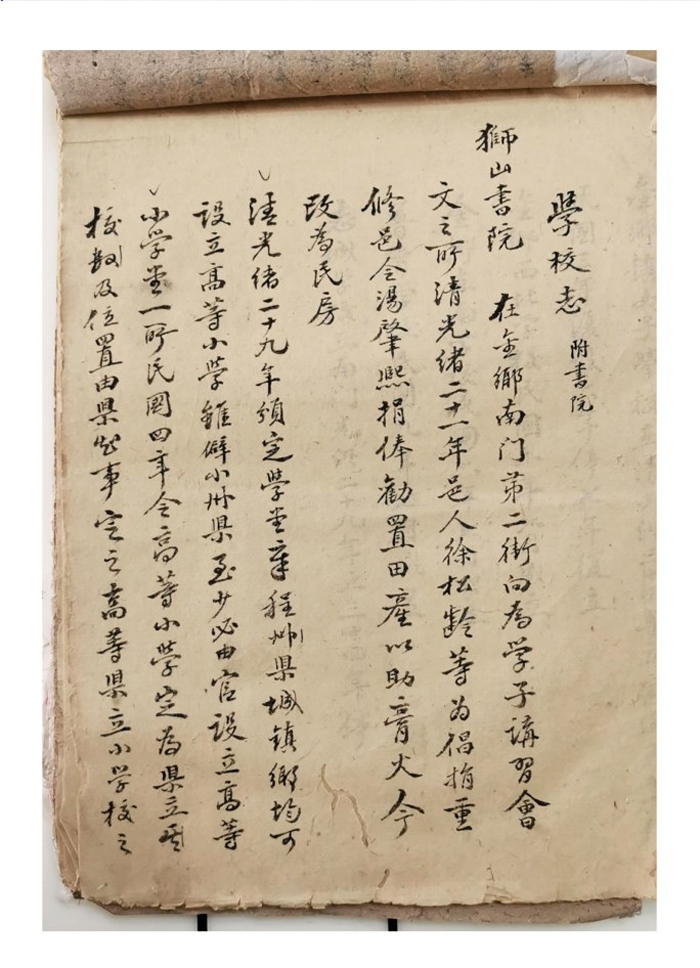 學校志 附書院
獅山書院 在金鄉南门苐二街向為学子講習會
文之所清光緒二十一年邑人徐松齡等为倡捐重
修邑令湯肇熙捐俸勸置田產以助膏火今
改為民房
清光緒二十九年頒定學堂章程州県城镇鄉均可
設立高等小学雖僻小州県至少必由官設立高等
小学堂一所民國四年令高等小學定為県立其
校数及位置由県知事定之高等県立小学校之